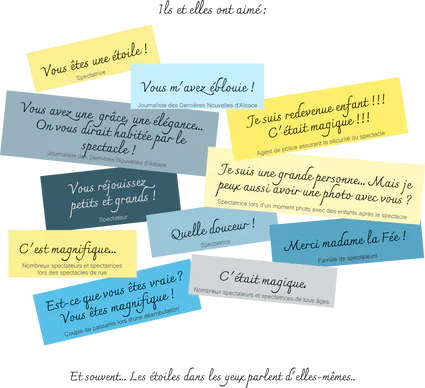 Ils et elles ont aimé :
Vous êtes une étoile !
Spectatrice
Vous m'avez éblouie !
Journaliste des Dernières Nouvelles d'Alsace
Vous avez une grâce, une élégance...
On vous dirait habitée par le
spectacle !
Journaliste des Dernières Nouvelles d'Alsace
Je suis redevenue enfant !!!
C'était magique !!!
Agent de police assurant la sécurité du spectacle
Je suis une grande personne... Mais je
peux aussi avoir une photo avec vous ?
Spectatrice lors d'un moment photo avec des enfants après le spectacle
Vous réjouissez
petits et grands !
Spectateur
Quelle douceur !
Spectatrice
Merci madame la Fée !
Famille de spectateurs
C'est magnifique...
Nombreux spectateurs et spectatrices
lors des spectacles de rue
C'était magique.
Nombreux spectateurs et spectatrices de tous âges
Est-ce que vous êtes vraie ?
Vous êtes magnifique !
Couple de passants lors d'une déambulation
Et souvent... Les étoiles dans les yeux parlent d'elles-mêmes..